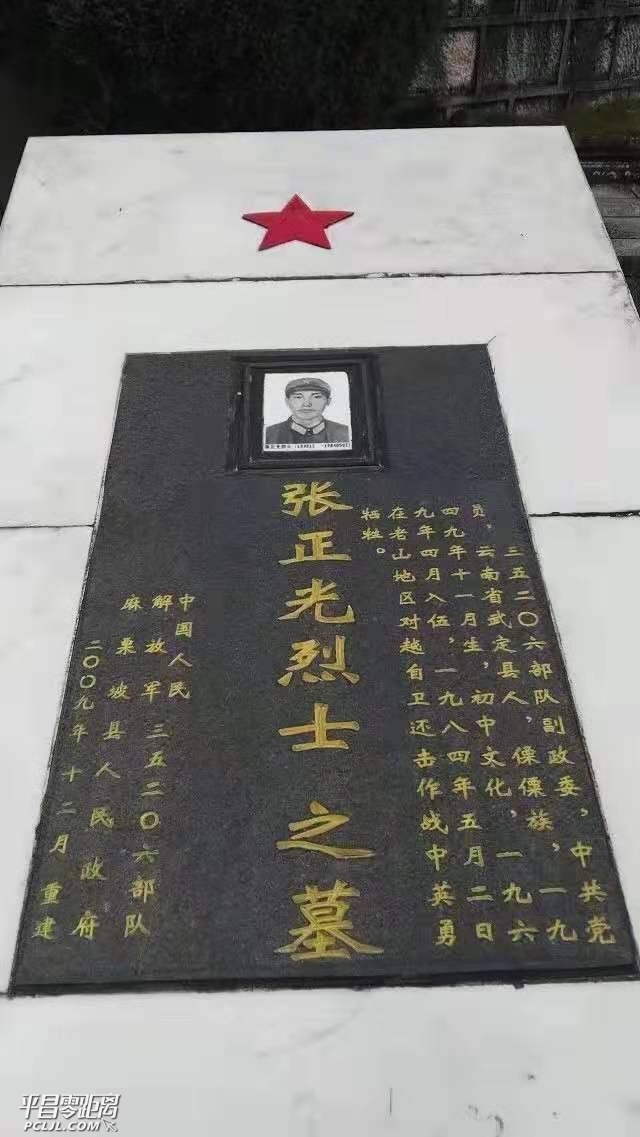 三五二〇六部队副政委，中共党
员，云南省武定县人，傈僳族，一九
四九年十一月生，初中文化，一九六
九年四月入伍，一九八四年五月二日
在老山地区对越自卫还击作战中英勇
牺牲。
张正光烈士之墓
中国人民
解放军三五二〇六部队
麻栗坡县人民政府
二〇〇九年十二月重建
平昌零距离
PCLJL.COM